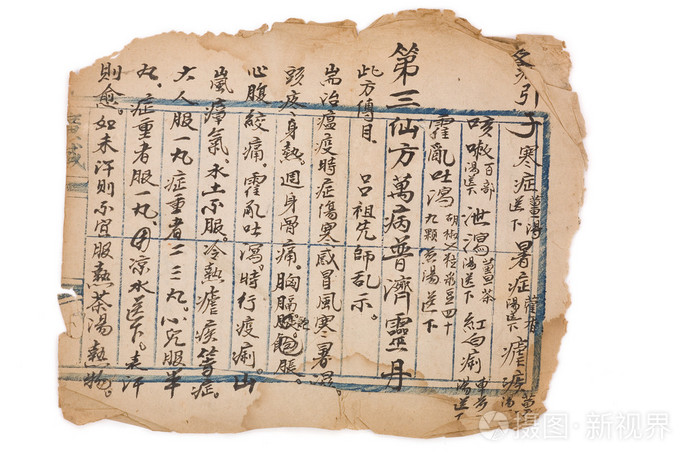 引子寒症薑湯送下暑症藿香湯送下瘧疾
咳嗽百部湯送下泄瀉薑茶湯送下紅白痢車前湯送下
霍亂吐瀉胡椒七粒彔豆四十九顆煎湯送下
第三仙方萬病普濟靈丹
此方傳自 呂祖先師乩示。
耑治瘟疫時症傷寒感冒風寒暑濕。
頭疼身熱。週身骨痛。胸膈飽脹。
心腹絞痛。霍亂吐瀉。時行疫痢。山
嵐瘴氣。水土不服。冷熱瘧疾等症。
大人服一丸症重者二三丸。小兒服半
丸。症重者服一丸。用凉水送下。表汗
則愈。如未汗則不宜服熱茶湯熱物。
摄图·新视界